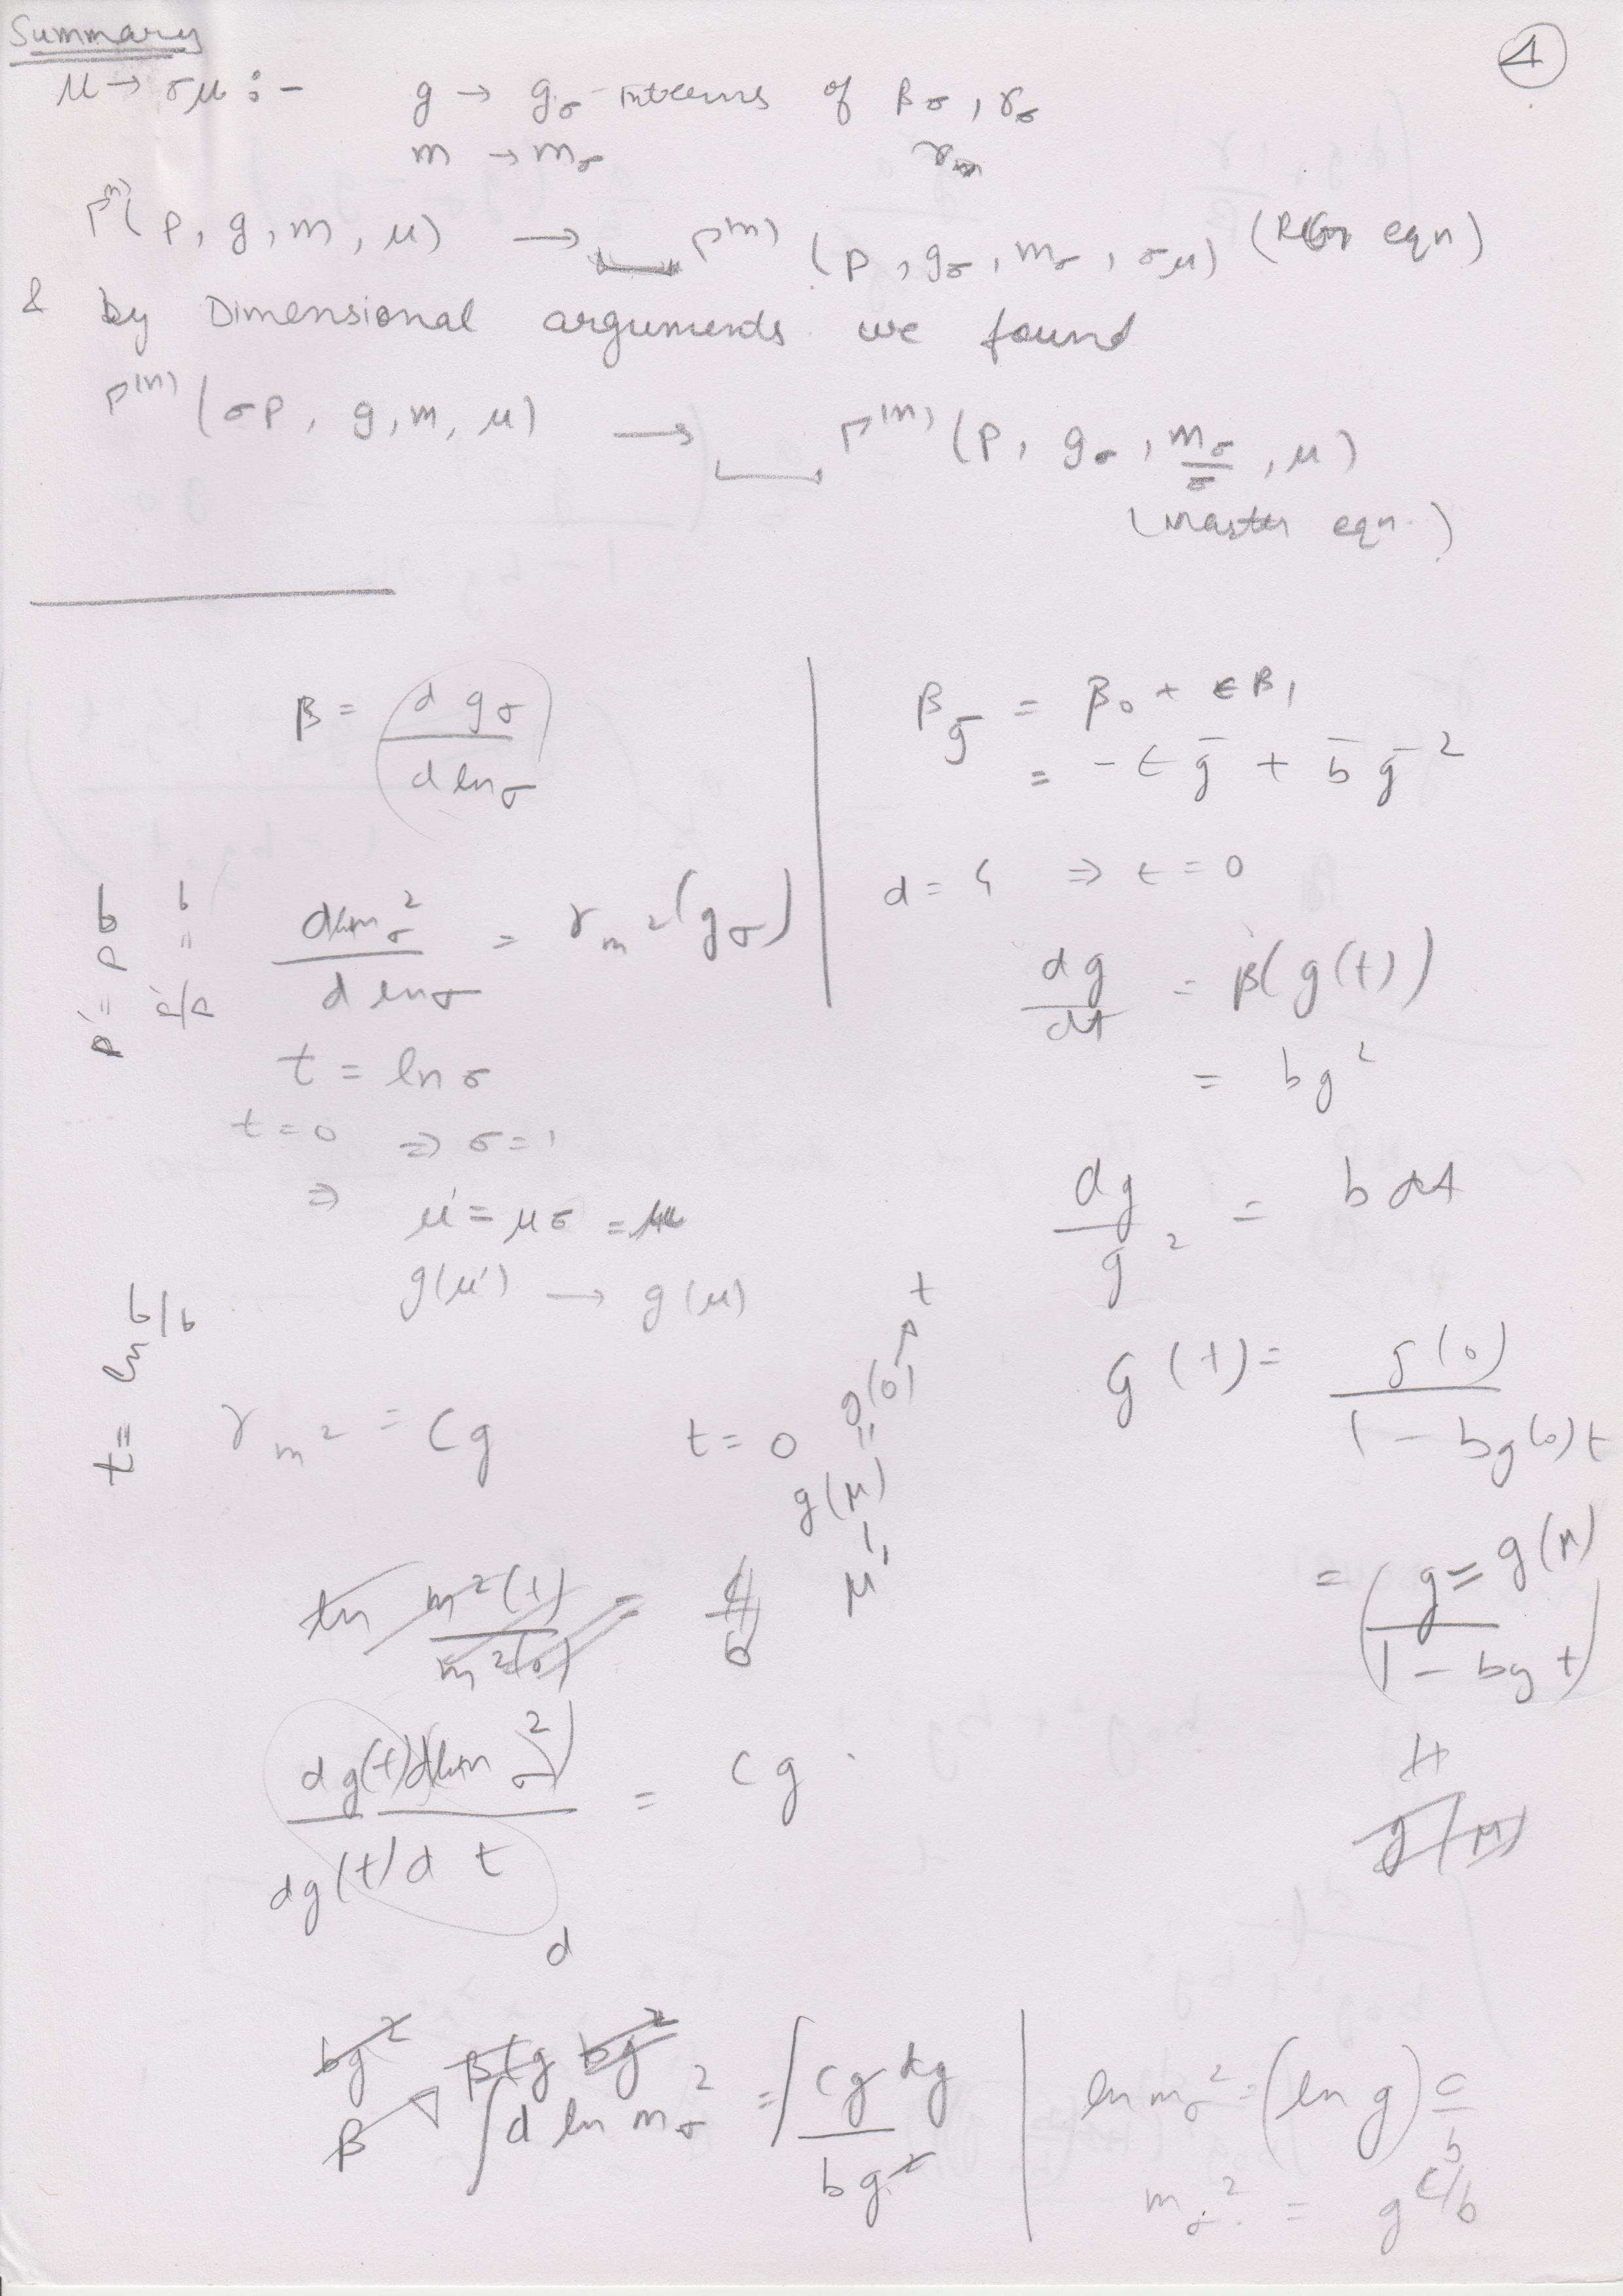 Summary
①
μ → σμ :- g → g_σ interms of β_σ, γ_σ
m → m_σ γ_m
Γ^(n)(p, g, m, μ) → ⎵ Γ^(n)(p, g_σ, m_σ, σμ) (RG eqn)
& by Dimensional arguments we found
Γ^(n)(σp, g, m, μ) → ⎵ Γ^(n)(p, g_σ, m_σ/σ, μ)
(Master eqn.)
β = d g_σ / d ln σ
d ln m_σ^2 / d ln σ = γ_m^2(g_σ)
t = ln σ
t = 0 ⇒ σ = 1
⇒ μ' = μσ = μ
g(μ') → g(μ)
γ_m^2 = cg
t = 0
g(0) → t
=
g(μ)
μ'
ln m^2(t) / m^2(0) = c/b
dg(t) d ln m_σ^2 / dg(t) d t = cg
d
bg^2 bg^2
β ∫ d ln m_σ^2 = ∫ cg dg / bg^2
β_ḡ = β_0 + εβ_1
= -εḡ + b̄ ḡ^2
d = 4 ⇒ ε = 0
dg/dt = β(g(t))
= bg^2
dg/g^2 = b dt
g(t) = g(0) / 1 - bg(0)t
= (g = g(μ) / 1 - bgt)
g(μ)
ln m_σ^2 = (ln g) c/b
m_σ^2 = g^c/b